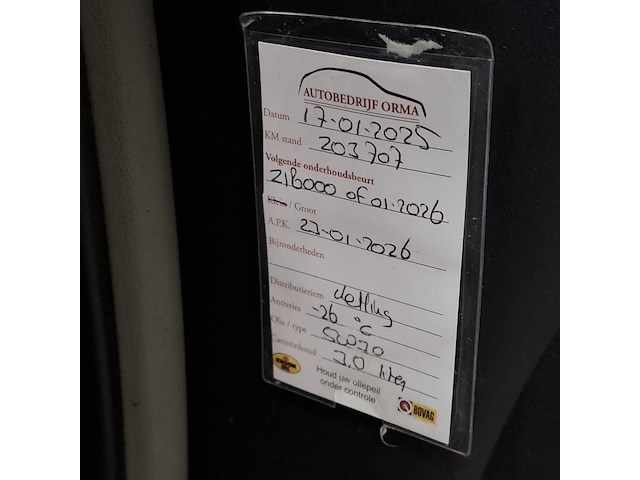 AUTOBEDRIJF ORMA
Datum 17-01-2025
KM stand 203707
Volgende onderhoudsbeurt
218000 of 01-2026
Klein / Groot
A.P.K. 23-01-2026
Bijzonderheden
Distributieriem ketting
Antivries -26 °C
Olie / type 5W30
Carterinhoud 7.0 liter
Houd uw oliepeil
onder controle
BOVAG